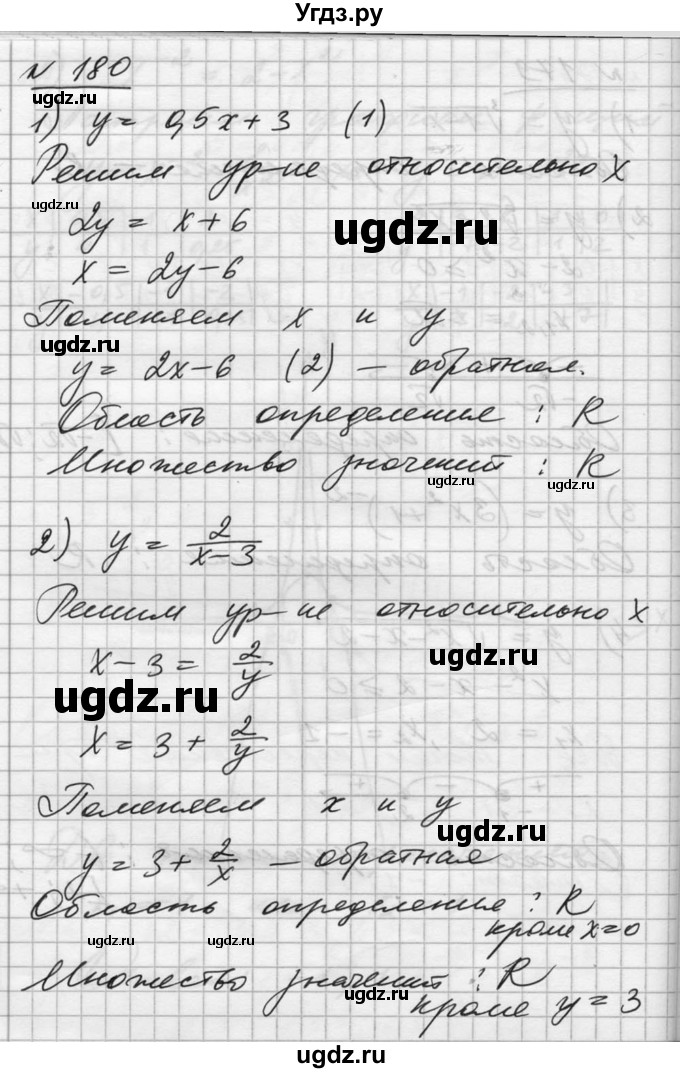 Угдз.ру
№ 180
ugdz.ru
1) y = 0,5x + 3 (1)
Решим ур-ие относительно x
ugdz.ru
2y = x + 6
ugdz.ru
x = 2y - 6
Поменяем x и y
ugdz.ru
y = 2x - 6 (2) — обратная.
ugdz.ru
Область определения : R
Множество значений : R
ugdz.ru ugdz.ru
2) y = 2/(x - 3)
Решим ур-ие относительно x
x - 3 = 2/y
ugdz.ru
ugdz.ru
x = 3 + 2/y
Поменяем x и y
ugdz.ru
y = 3 + 2/x — обратная
Область определения : R
кроме x = 0
ugdz.ru ugdz.ru
Множество значений : R
ugdz.ru
кроме y = 3
ugdz.ru